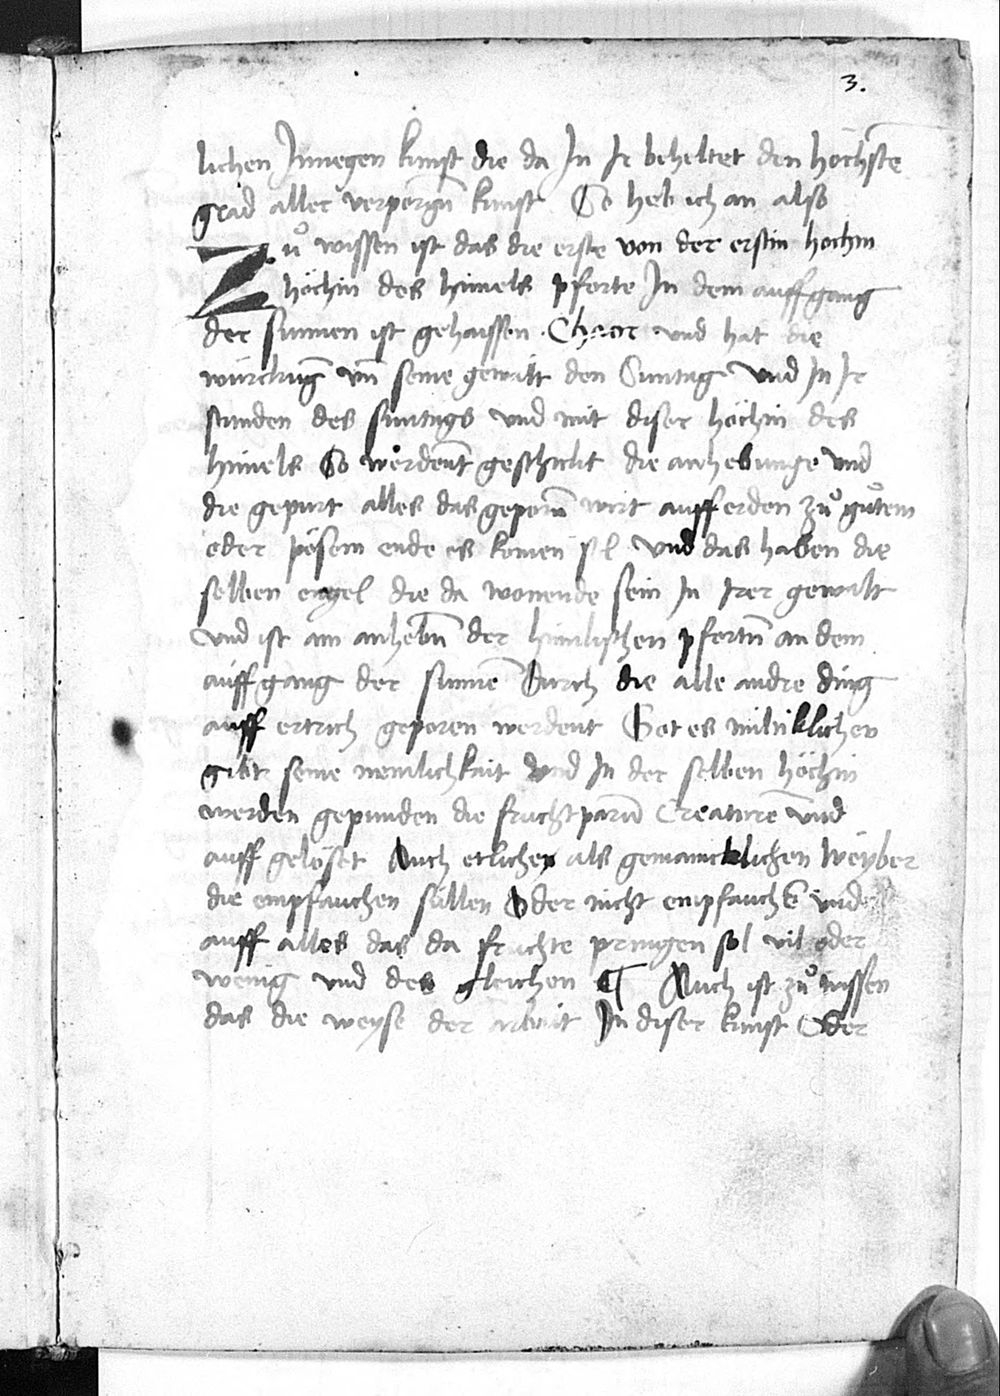 3.
lichen Innegen kunst die da In Ir beheltet den höchste
grad aller verporgn̄ kunst So heb ich an also
Zů wissen ist das die erste von der erstin hochin
höchin des himels pforte In dem auffgang
der sunnen ist gehaissen Chaor und hat die
würckūg vn̄ seine gewalt den Suntag Vnd In Ir
stunden des suntags vnd mit diser höchin des
himels So werdent geschickt die anhebunge vnd
die gepurt alles das geporn̄ wirt auff erden zů gůtem
oder pösem ende es komen sol Vnd das haben die
selben engel die da wonende sein In Irer gewalt
Vnd ist am anhebn̄ der himlischen pfortn̄ an dem
auffgang der sunnē Durch die alle andre ding
auff ertrich geporen werdent Got es miltiklichen
gibt seine nemlichkait Vnd In der selben höchin
werden gepunden die fruchtparn̄ Creaturē Vnd
auff gelöset Auch etlicher als gemaincklichen Weyber
die empfauchen süllen Oder nicht empfauchē̄ vnd
auff alles das da fruchte pringen sol vil oder
wenig vnd des gleichen ¶ Auch ist zů wissen
das die weyse der arbait In diser kunst Oder